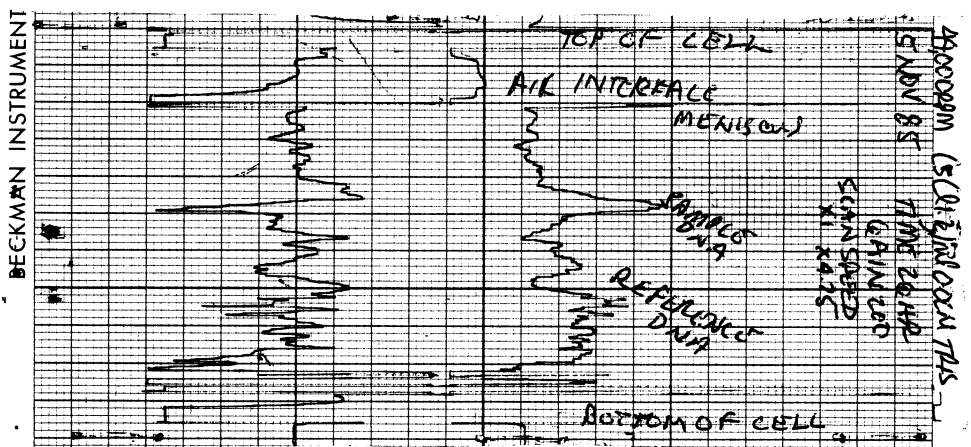 BECKMAN INSTRUMENT
TOP OF CELL
AIR INTERFACE
MENISCUS
SAMPLE
DNA
REFERENCE
DNA
BOTTOM OF CELL
5 NOV 85
TIME 20 HR
GAIN 200
SCAN SPEED
X1 X4.25